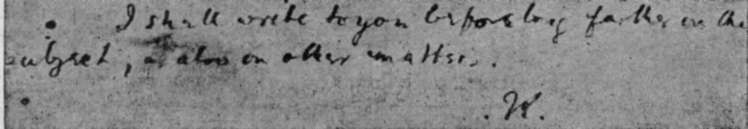 I shall write to you before long farther on the
subject, as also on other matters.
W.